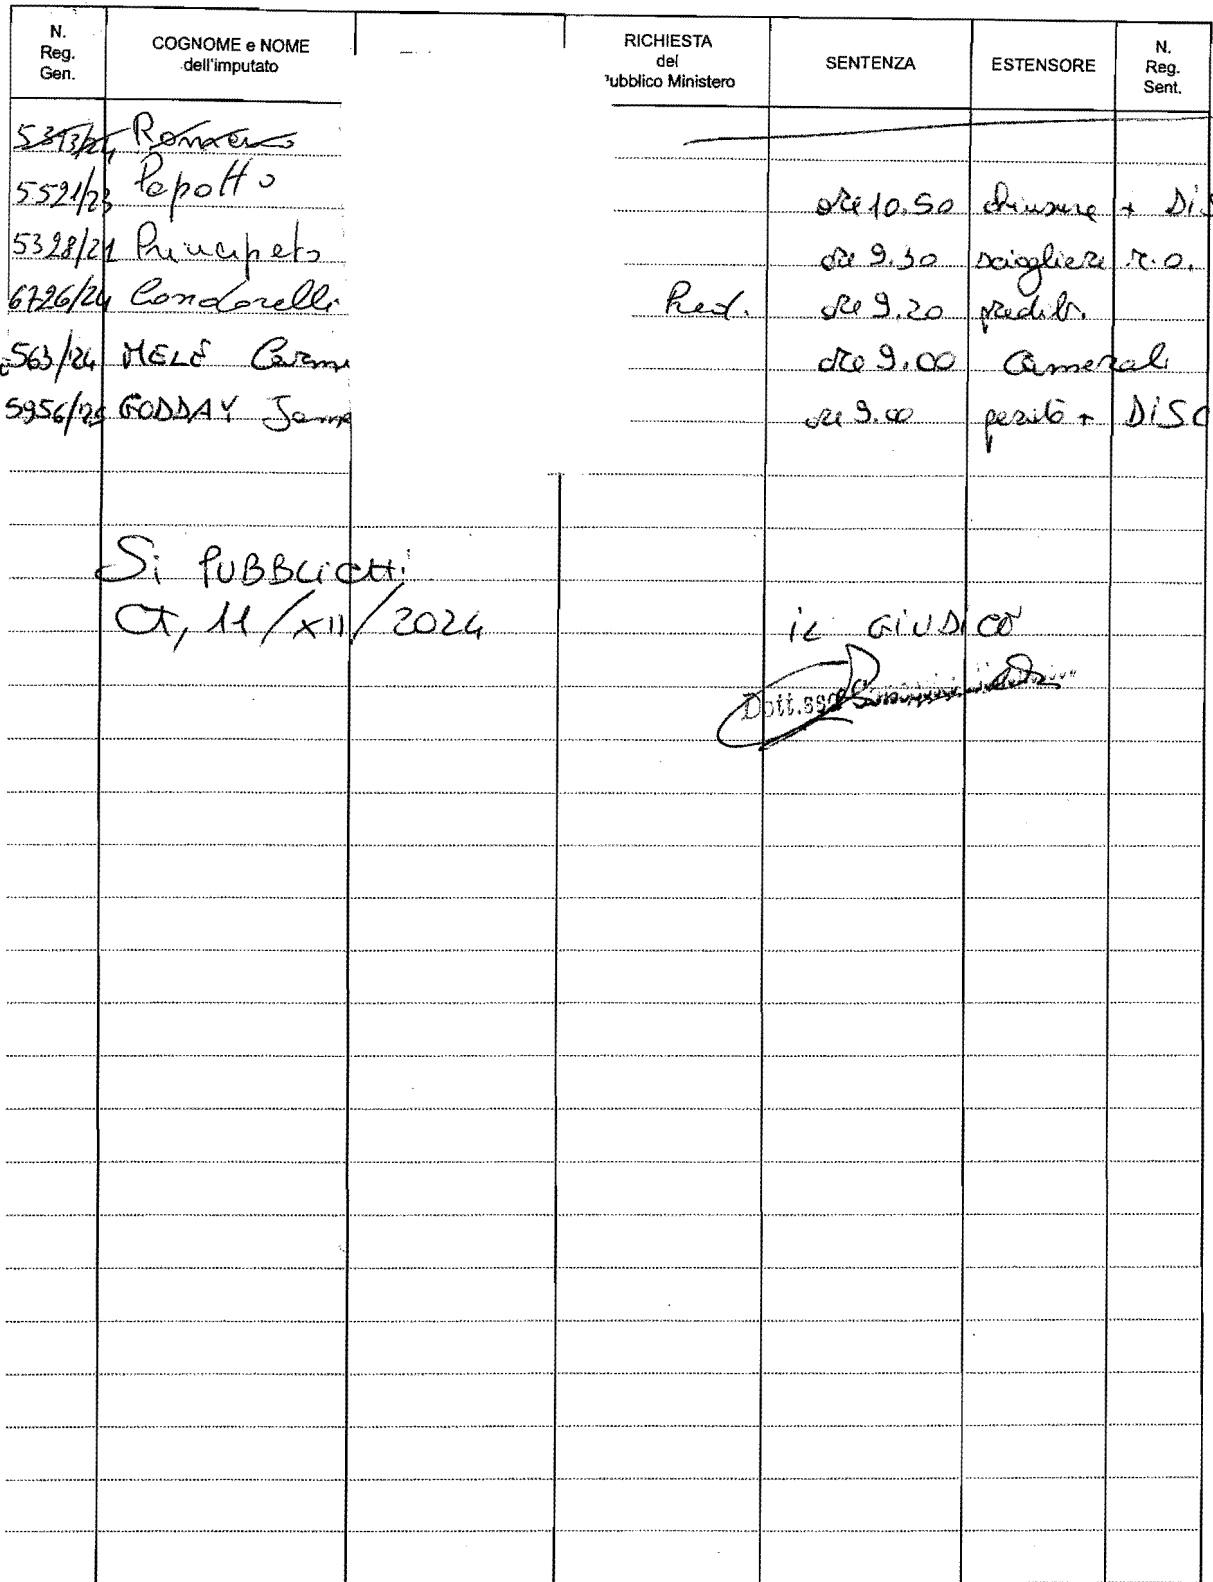 N. Reg. Gen. COGNOME e NOME dell'imputato RICHIESTA del Pubblico Ministero SENTENZA ESTENSORE N. Reg. Sent.
Romano
5521/23 Papotto ore 10.50 chiusure + DIS
5328/21 Principato ore 9.30 sciogliere r.o.
6726/24 Condorelli Pred. ore 9.20 predib.
563/24 MELE Carme ore 9.00 Camerali
5956/25 GODDAY Jame ore 9.00 perito + DISC
Si PUBBLICHI
CT, 11/XII/2024 IL GIUDICE
Dott.ssa